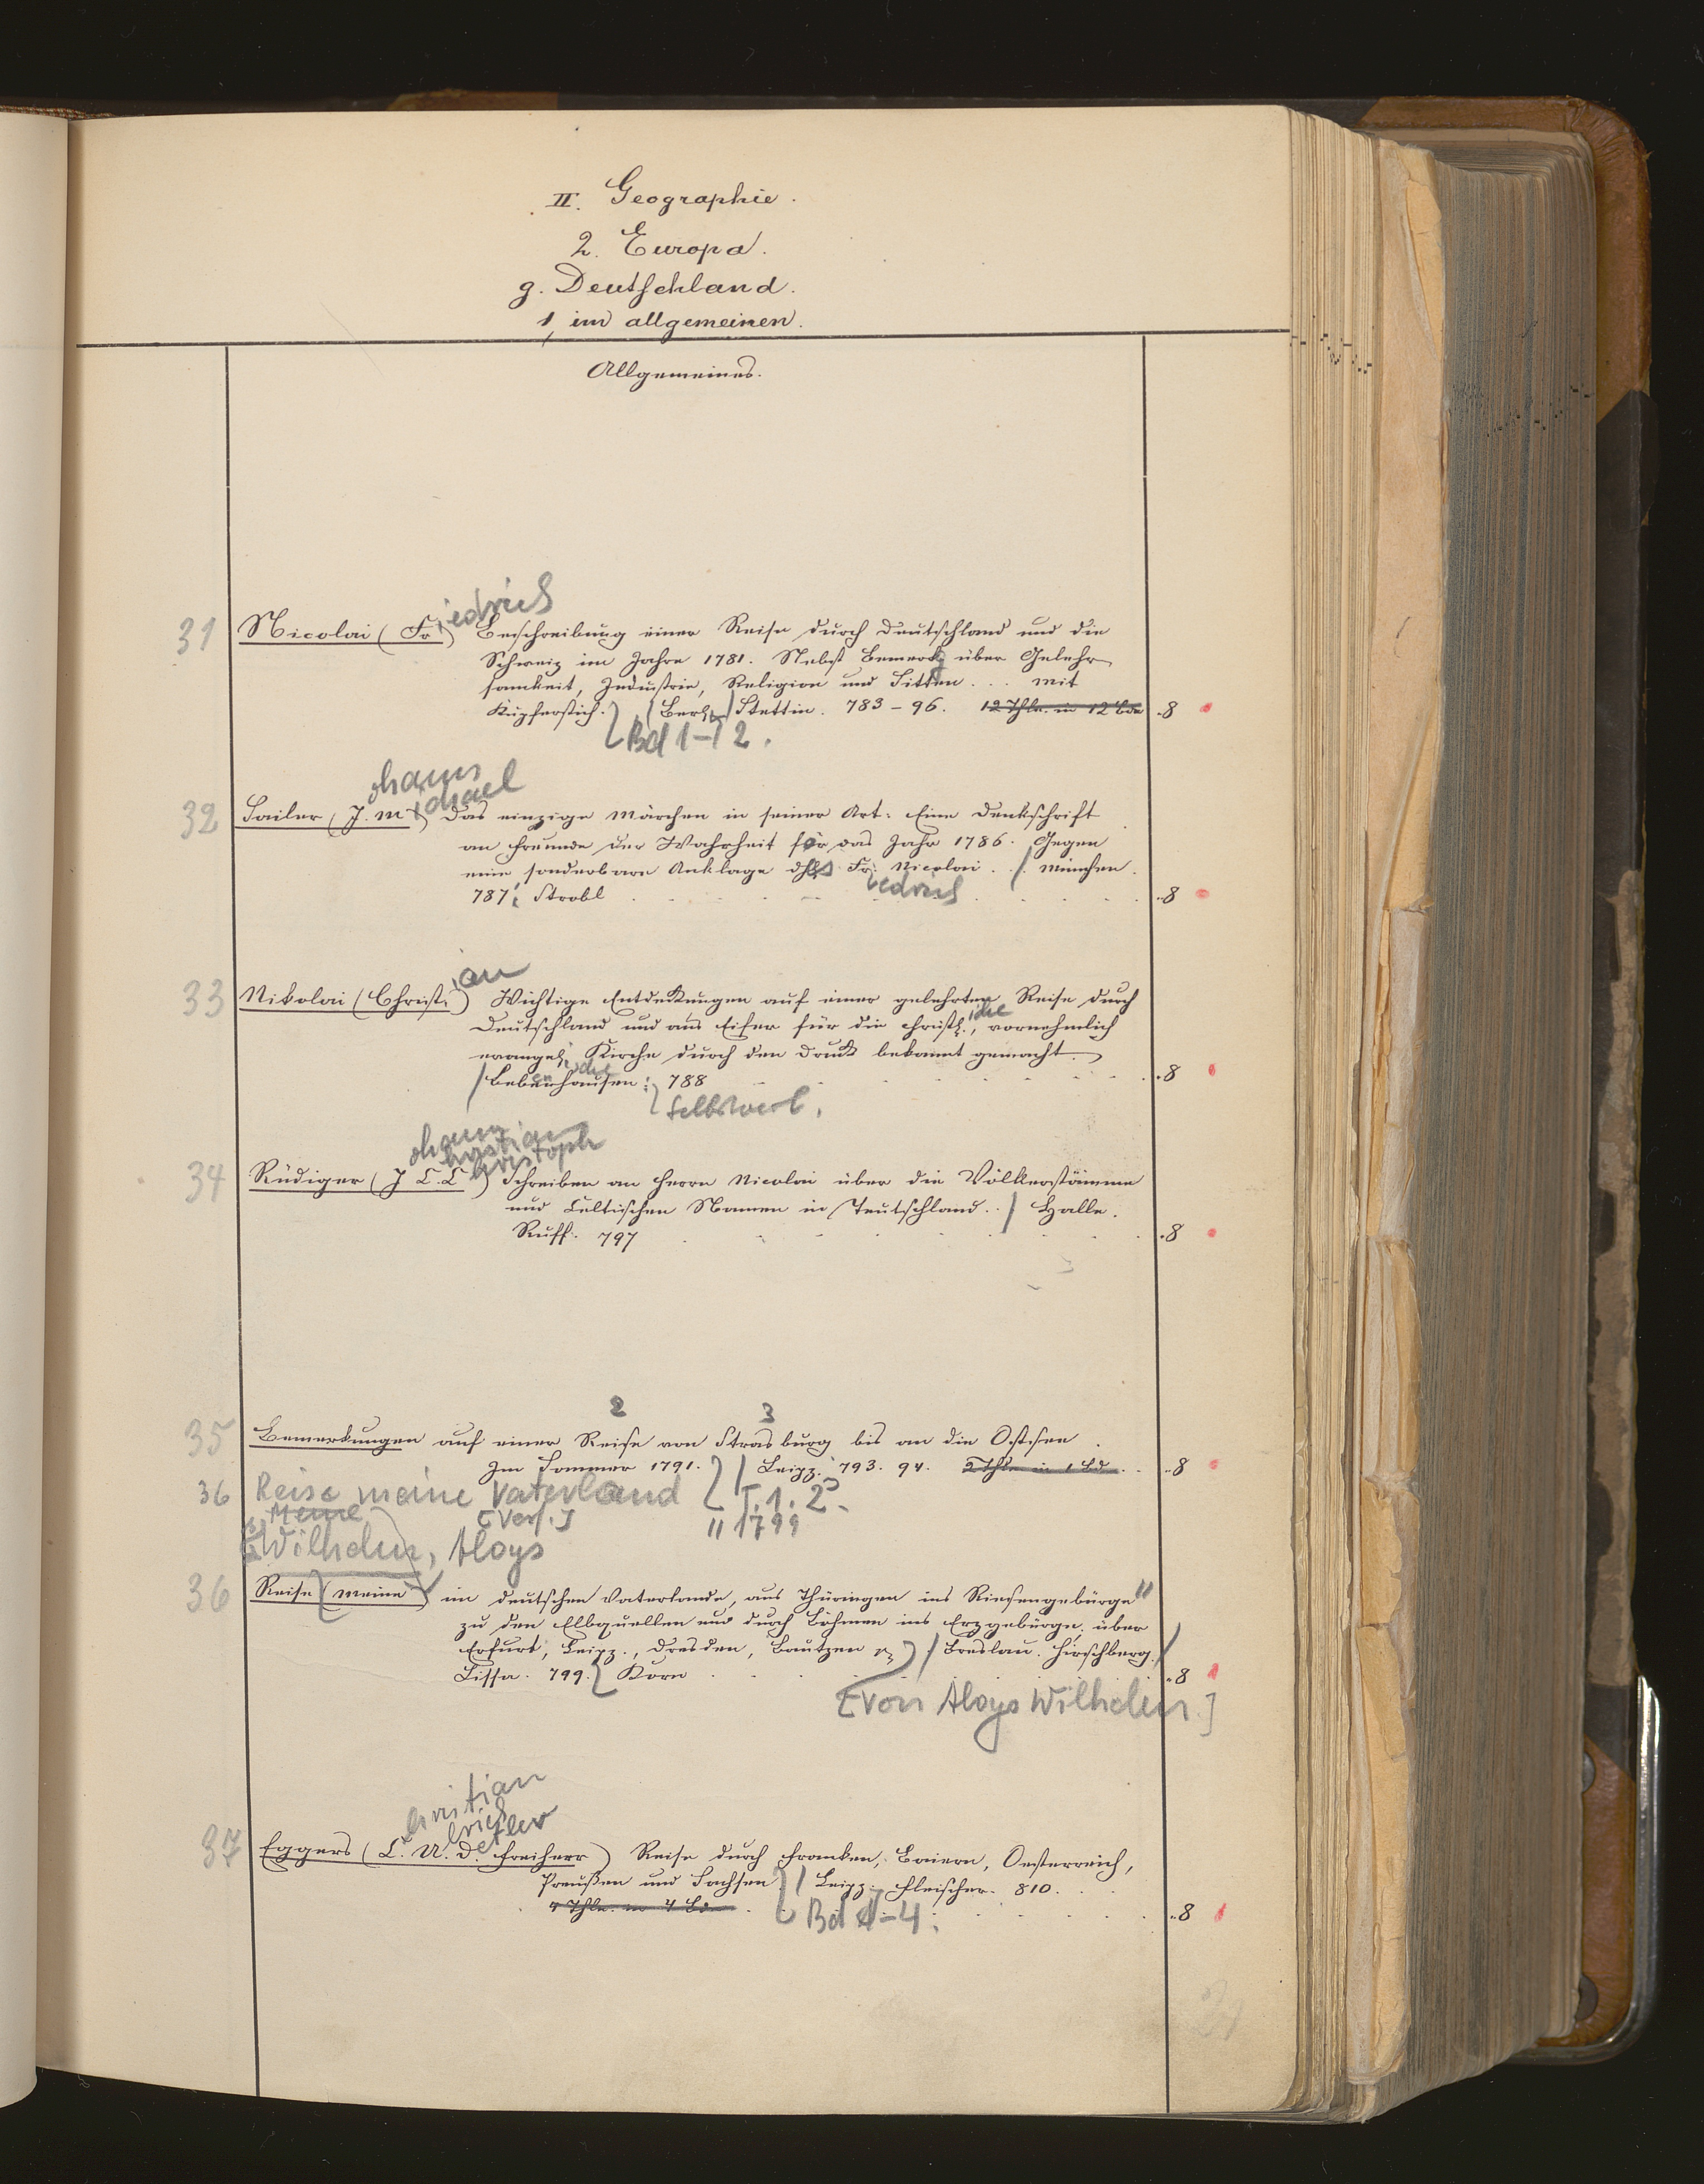 II. Geographie.
2. Europa.
g. Deutschland.
1, im allgemeinen.
Allgemeines.
iedrich
31 Nicolai (Fr) Beschreibung einer Reise durch Deutschland und die
Schweiz im Jahre 1781. Nebst Bemerkg über Gelehr-
samkeit, Industrie, Religion und Sitten ... mit
Kupferstich. / Berl. / Stettin. 783-96. 12 Thle. in 12 Bde .8
Bd 1-12.
ohann
ichael
32 Sailer (J. M) Das einzige Märchen in seiner Art: Eine Denkschrift
an Freunde der Wahrheit für das Jahr 1786. Gegen
eine sonderbare Anklage des Fr. Nicolai. / München.
iedrich
787. Strobl .8
ian
33 Nikolai (Christ.) Wichtige Entdekungen auf einer gelehrten Reise durch
iche
Deutschland und aus Eifer für die christl., vornehmlich
evangel. Kirche durch den Druck bekannt gemacht.
ische
/ Bebenhausen: 788 .8
Selbstverl.
ohann
hristian
hristoph
34 Rüdiger (J C. C) Schreiben an Herrn Nicolai über die Völkerstämme
und Celtischen Namen in Teutschland. / Halle.
Ruff. 797 .8
2 3
35 Bemerkungen auf einer Reise von Strasburg bis an die Ostsee.
Im Sommer 1791. / Leipz. 793. 94. 2 Thle in 1 Bd. .8
T. 1. 2
36 Reise meine Vaterland
Meine [Verf.] 1799
Wilhelm, Aloys
36 Reise (meine) im deutschen Vaterlande, aus Thüringen ins Riesengebürge
zu den Elbquellen und durch Böhmen ins Erzgebürge, über
Erfurt, Leipz., Dresden, Bautzen / Breslau. Hirschberg. /
Lissa. 799. Korn .8
[von Aloys Wilhelm.]
hristian
lrich
etlev
37 Eggers (C. U. D. Freiherr) Reise durch Franken, Baiern, Oesterreich,
Preußen und Sachsen. / Leipz. Fleischer. 810.
4 Thle. in 4 Bd. .8
Bd 1-4.